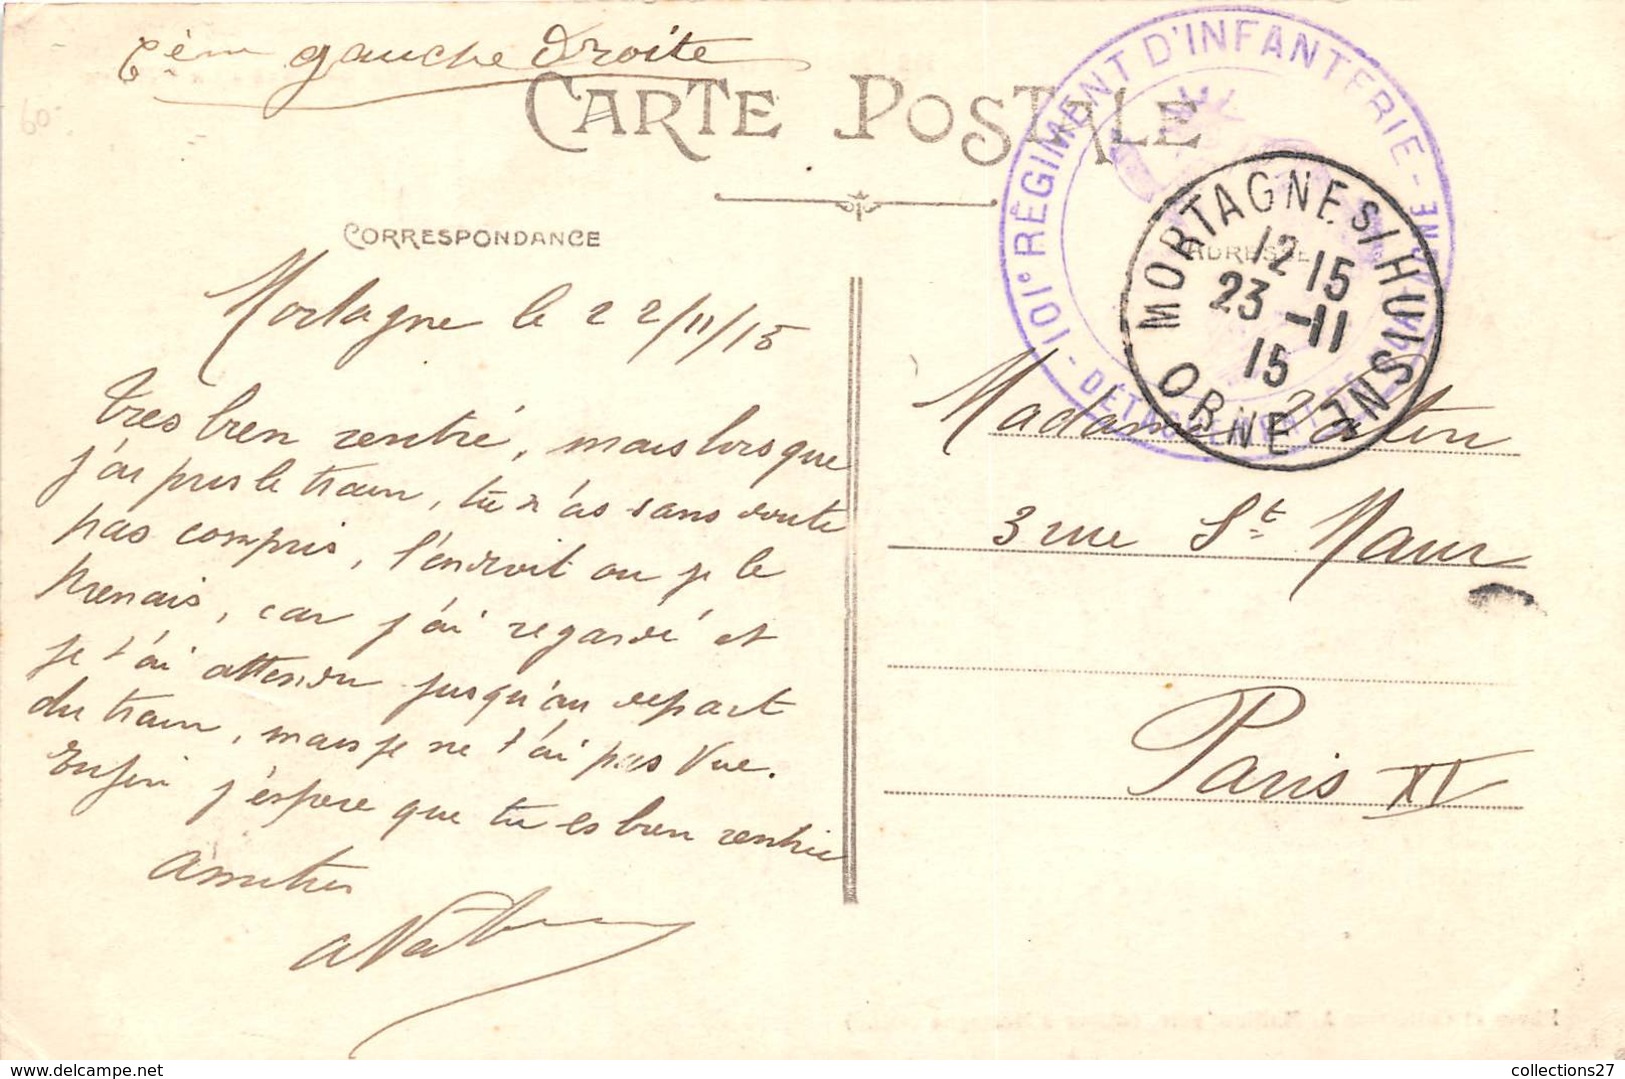 6èm gauche Droite
CARTE POSTALE
CORRESPONDANCE
ADRESSE
101e RÉGIMENT D'INFANTERIE
DÉTACHEMENT DE
MORTAGNE S/HUISNE
12 15
23 -11
15
ORNE
Mortagne le 22/11/15
très bien rentré, mais lorsque
j'ai pris le train, tu n'as sans doute
pas compris, l'endroit ou je le
prenais, car j'ai regardé et
je t'ai attendu jusqu'au départ
du train, mais je ne t'ai pas vue.
Enfin j'espère que tu es bien rentrée
Amitiés
Madame
3 rue St Maur
Paris XI
collections27